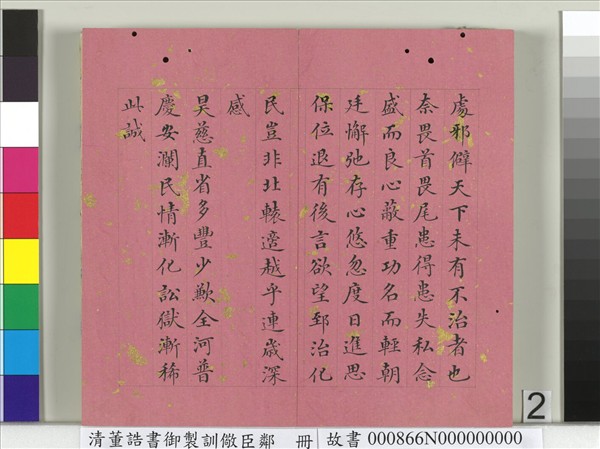 處邪僻天下未有不治者也
奈畏首畏尾患得患失私念
盛而良心蔽重功名而輕朝
廷懈弛存心悠忽度日進思
保位退有後言欲望郅治化
民豈非北轅適越乎連歲深
感
昊慈直省多豐少歉全河普
慶安瀾民情漸化訟獄漸稀
此誠
2
清董誥書御製訓儆臣鄰 冊
故書 000866N000000000